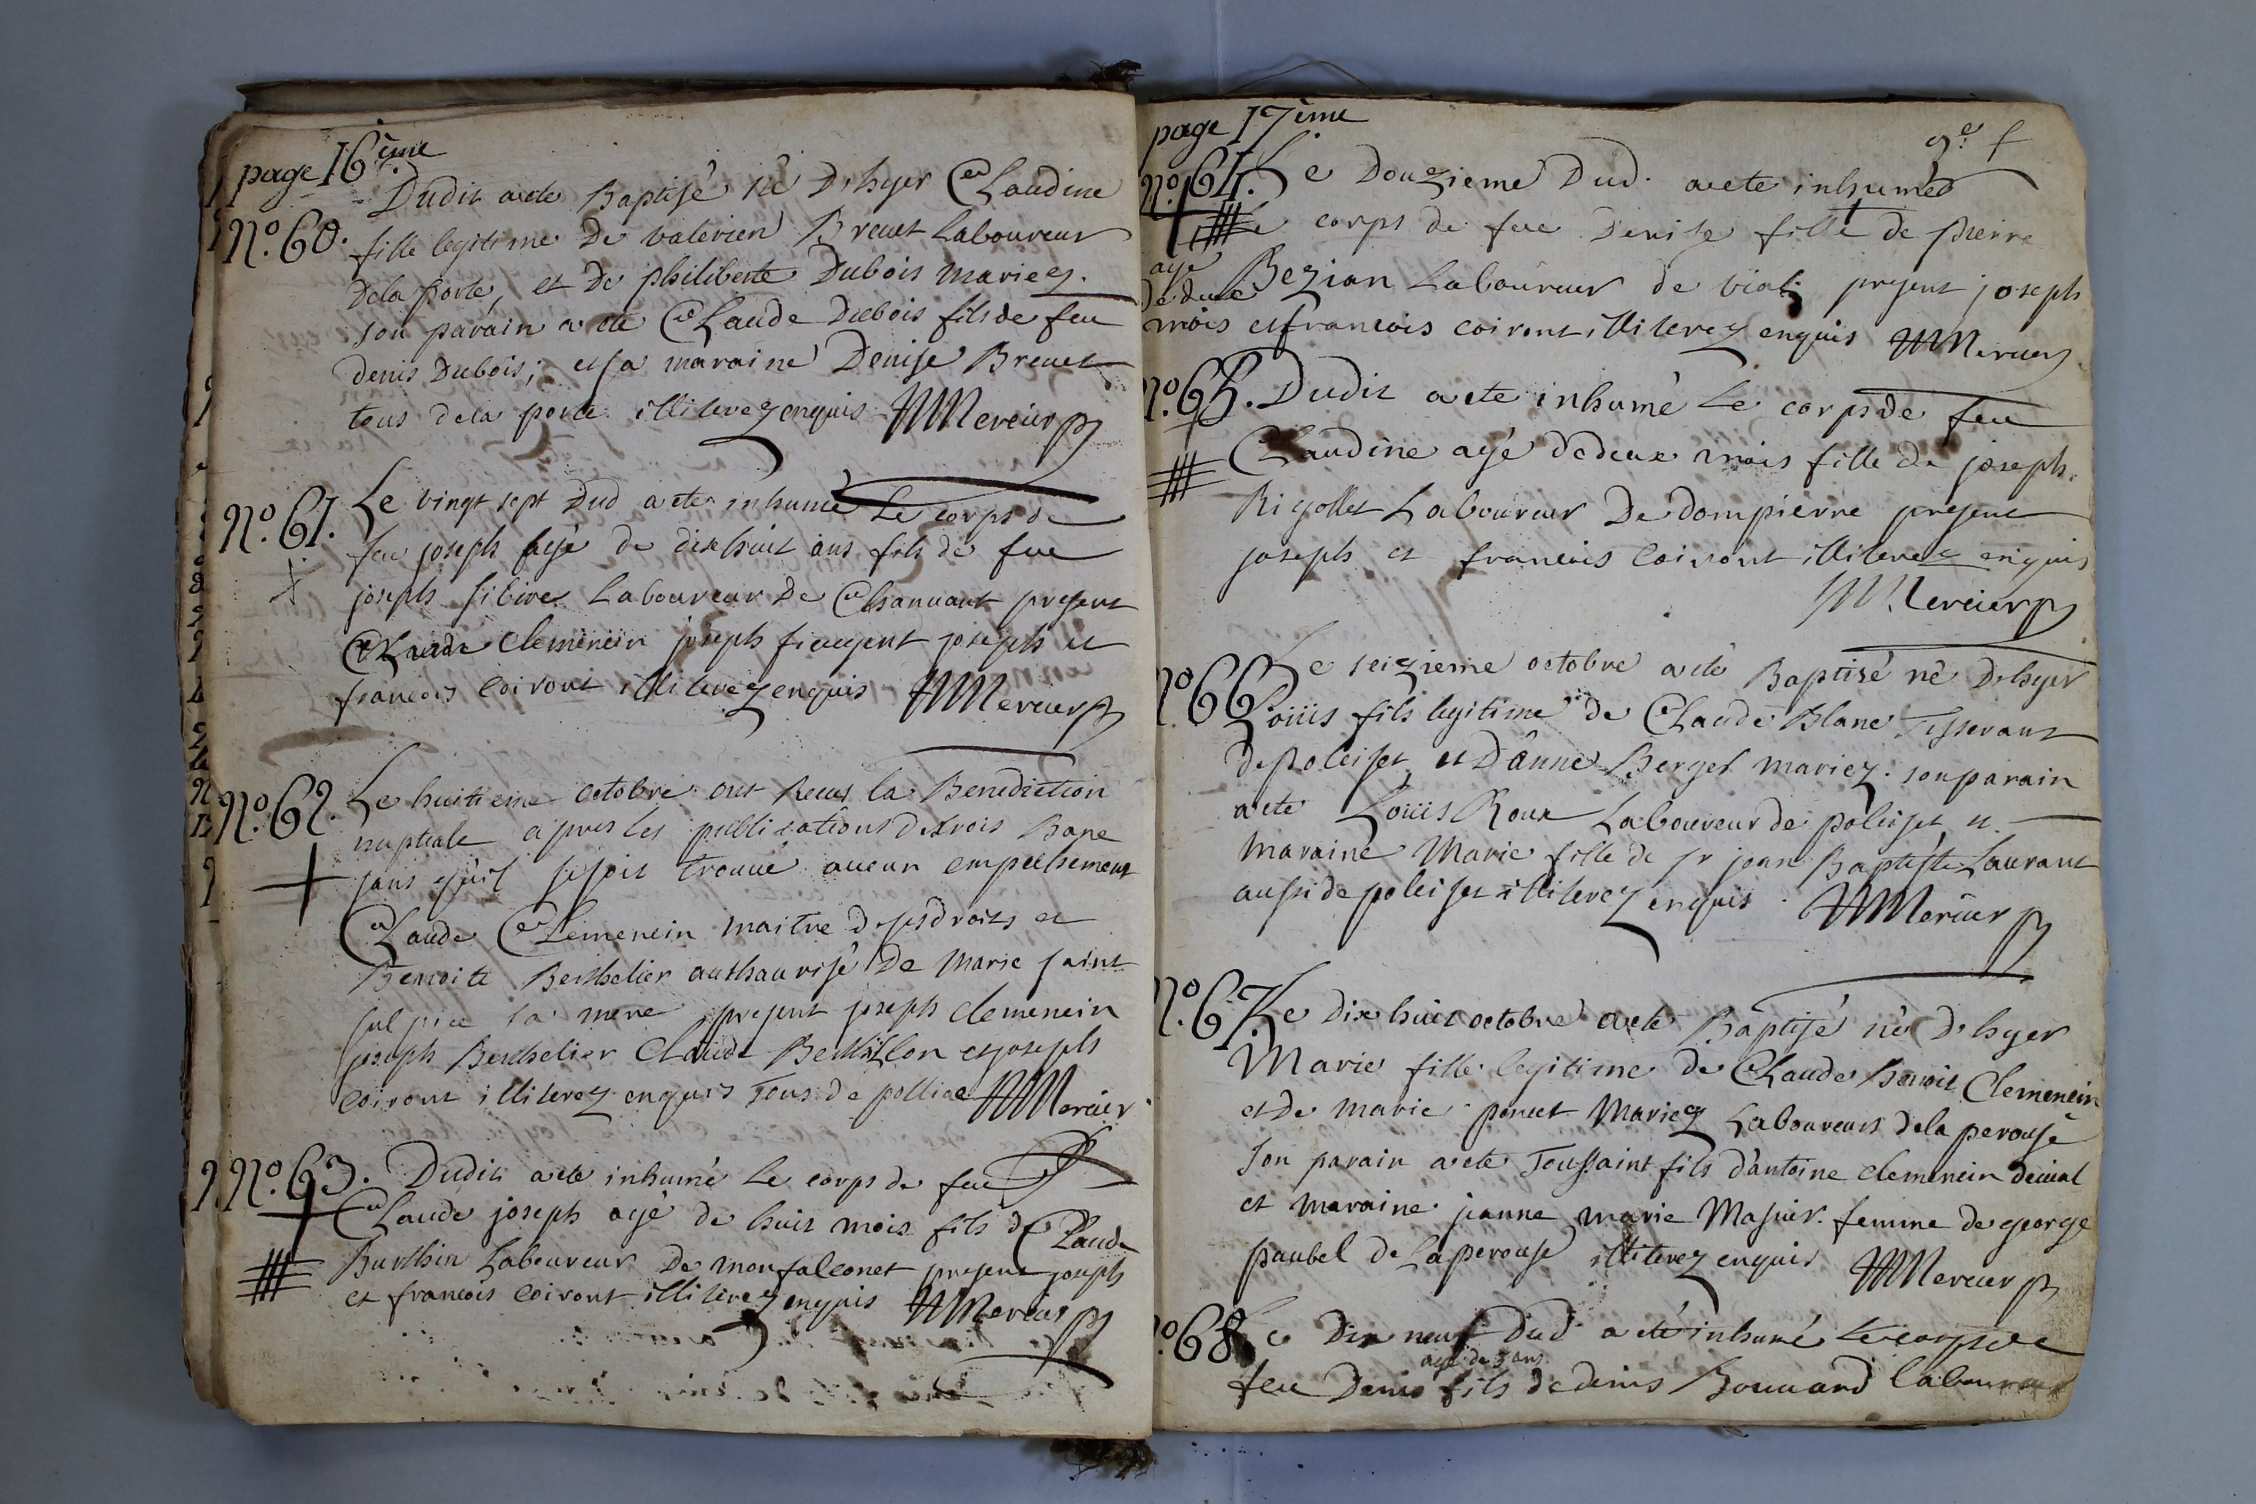 page 16ème
N.o 60. Dudit a ete Baptisé né Dhyer Claudine
fille legitime De valerien Brevet Laboureur
Dela porte, et De philiberte Dubois mariez.
son parain a ete Claude Dubois fils de feu
denis Dubois; et sa maraine Denise Brevet
tous dela porte illiterez enquis Mercier
N.o 61. Le vingt sept Dud a ete inhumé Le corps de
feu joseph agé de dixhuit ans fils de feu
joseph Laboureur De Chanvant present
Claude Clemencin joseph joseph et
francois Coiront illiterez enquis Mercier
N.o 62. Le huitieme octobre ont Receus la Benediction
nuptiale apres les publications detrois Bans
sans qu'il se soit trouvé aucun empechement
Claude Clemencin maitre desesdroits et
Benoite Berthelier authaurisé De Marie saint
sulpice sa mere present joseph clemencin
joseph Berthelier Claude Berthillon et joseph
Coiront illiterez enquis Tous de pollice Mercier
N.o 63. Dudit a ete inhumé Le corps de feu
Claude joseph agé de huit mois fils de Claude
Burthin Laboureur De monfalconet present joseph
et francois Coiront illiterez enquis Mercier
page 17ème
9.e
N.o 64. Le Douzieme Dud. a ete inhumé
le corps de feue Denise fille de pierre
agé
de deux Bezian Laboureur de vial present joseph
mois et francois coiront illiterez enquis Mercier
N.o 65. Dudit a ete inhumé Le corps de feu
Claudine agé dedeux mois fille de joseph
Rigollet Laboureur De dompierre present
joseph et francois Coiront illiterez enquis
Mercier
N.o 66 Le seizieme octobre a eté Baptisé né Dhyer
Loüis fils legitime de Claude Blanc Tisserant
de poleiset et D'anne Berget mariez. son parain
a ete Loüis Roux Laboureur de poleiset et
maraine Marie fille de sr jean Baptiste Laurant
aussi de poleiset illiterez enquis. Mercier
N.o 67. Le dix huit octobre a ete Baptisé né Dhyer
Marie fille legitime de Claude Benoit Clemencin
et de marie poncet Mariez Laboureurs dela perouse
son parain a ete Toussaint fils d'antoine clemencin devial
et maraine jeanne marie Masuir femme de george
paubel de Laperouse illiterez enquis Mercier
N.o 68. Le Dix neuf Dud a eté inhumé Le corps de
agé de 3 ans
feu Denis fils dedenis Bouvard laboureur